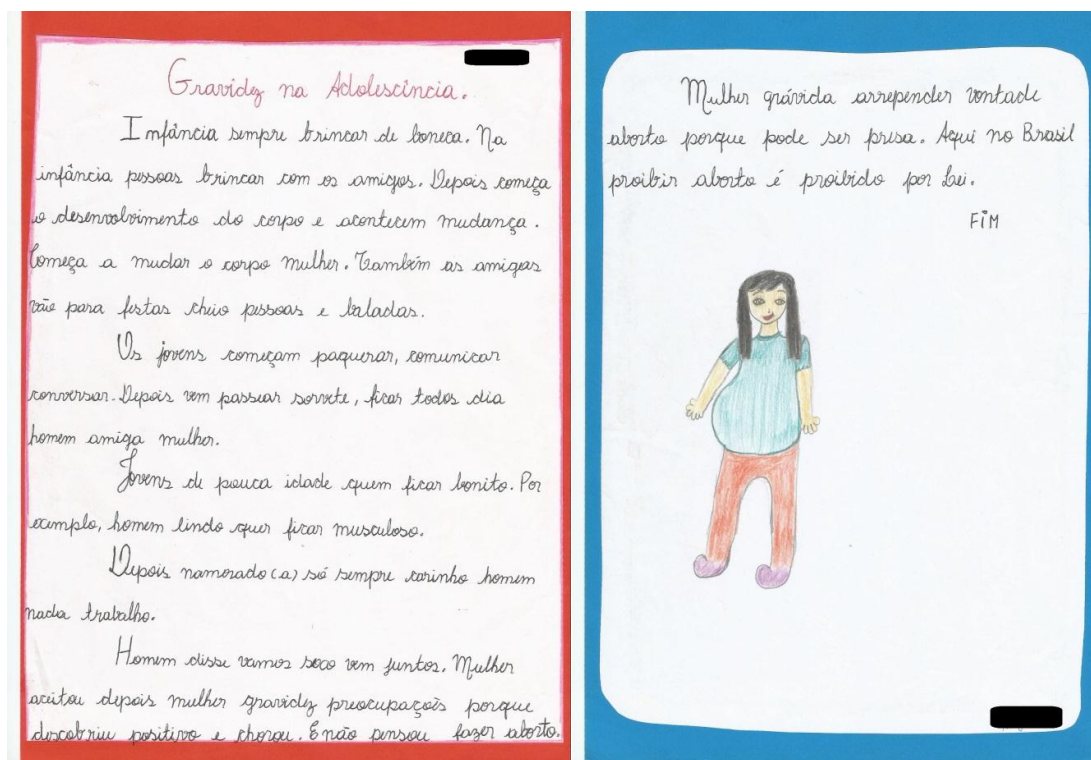 Gravidez na Adolescência.
Infância sempre brincar de boneca. Na
infância pessoas brincar com os amigos. Depois começa
o desenvolvimento do corpo e acontecem mudança.
Começa a mudar o corpo mulher. Também as amigas
vão para festas cheio pessoas e baladas.
Os jovens começam paquerar, comunicar
conversar. Depois vem passear sorvete, ficar todos dia
homem amiga mulher.
Jovens de pouca idade quem ficar bonito. Por
exemplo, homem lindo quer ficar musculoso.
Depois namorado(a) só sempre carinho homem
nada trabalho.
Homem disse vamos sexo vem juntos. Mulher
aceitou depois mulher gravidez preocupações porque
descobriu positivo e chorou. Então pensou fazer aborto.
Mulher grávida arrepender vontade
aborto porque pode ser presa. Aqui no Brasil
proibir aborto é proibido por Lei.
FIM